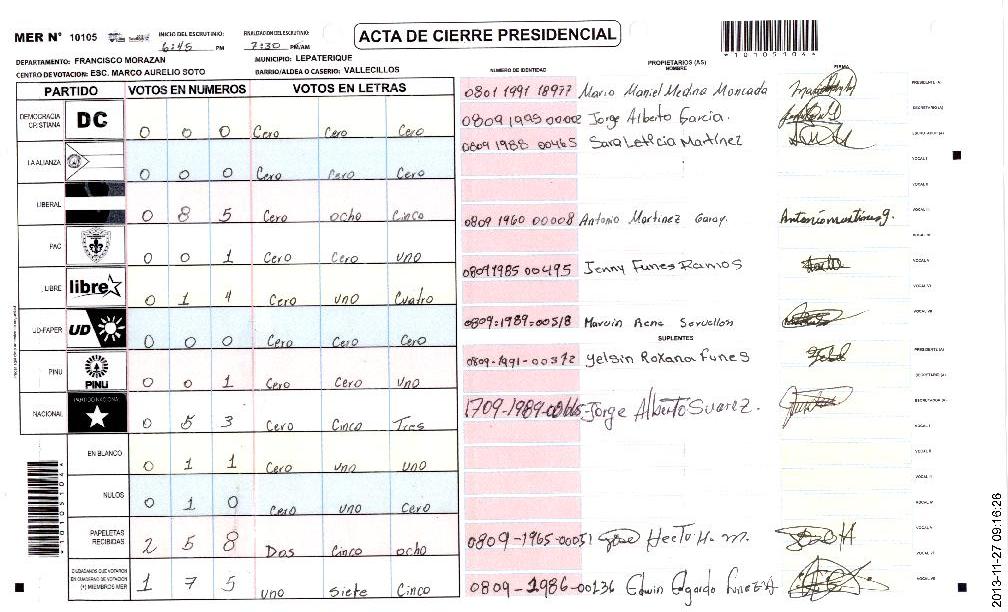 MER N° 10105
INICIO DEL ESCRUTINIO: 6:45 PM
FINALIZACION DEL ESCRUTINIO: 7:30 PM/AM
ACTA DE CIERRE PRESIDENCIAL
*10105104*
DEPARTAMENTO: FRANCISCO MORAZAN
MUNICIPIO: LEPATERIQUE
CENTRO DE VOTACION: ESC. MARCO AURELIO SOTO
BARRIO/ALDEA O CASERIO: VALLECILLOS
PARTIDO VOTOS EN NUMEROS VOTOS EN LETRAS
DEMOCRACIA CRISTIANA DC 0 0 0 Cero Cero Cero
LA ALIANZA 0 0 0 Cero Cero Cero
LIBERAL 0 8 5 Cero ocho Cinco
PAC 0 0 1 Cero Cero uno
LIBRE libre 0 1 4 Cero uno Cuatro
UD-FAPER UD 0 0 0 Cero Cero Cero
PINU PINU 0 0 1 Cero Cero uno
NACIONAL PARTIDO NACIONAL 0 5 3 Cero Cinco Tres
EN BLANCO 0 1 1 Cero uno uno
NULOS 0 1 0 Cero uno Cero
PAPELETAS RECIBIDAS 2 5 8 Dos Cinco ocho
CIUDADANOS QUE VOTARON EN CUADERNO DE VOTACION (+) MIEMBROS MER 1 7 5 uno siete Cinco
*10105104*
NUMERO DE IDENTIDAD
PROPIETARIOS (AS)
NOMBRE
FIRMA
0801 1991 18977 Mario Maniel Medina Moncada PRESIDENTE (A)
0809 1995 00002 Jorge Alberto Garcia. SECRETARIO (A)
0809 1988 00465 Sara Leticia Martínez ESCRUTADOR (A)
VOCAL I
VOCAL II
0809 1960 00008 Antonio Martinez Garay. Antonio martines g. VOCAL III
VOCAL IV
0809 1985 00495 Jenny Funes Ramos VOCAL V
VOCAL VI
0809-1989-00518 Marvin Rene Servellon VOCAL VII
SUPLENTES
0809-1991-00372 Yelsin Roxana Funes PRESIDENTE (A)
SECRETARIO (A)
1709-1989-00665 Jorge Alberto Suarez. ESCRUTADOR (A)
VOCAL I
VOCAL II
VOCAL III
VOCAL IV
0809-1965-00051 Jose Hecto H. m. VOCAL V
VOCAL VI
0809-1986-00136 Edwin Edgardo Funez A VOCAL VII
2013-11-27 09:16:26